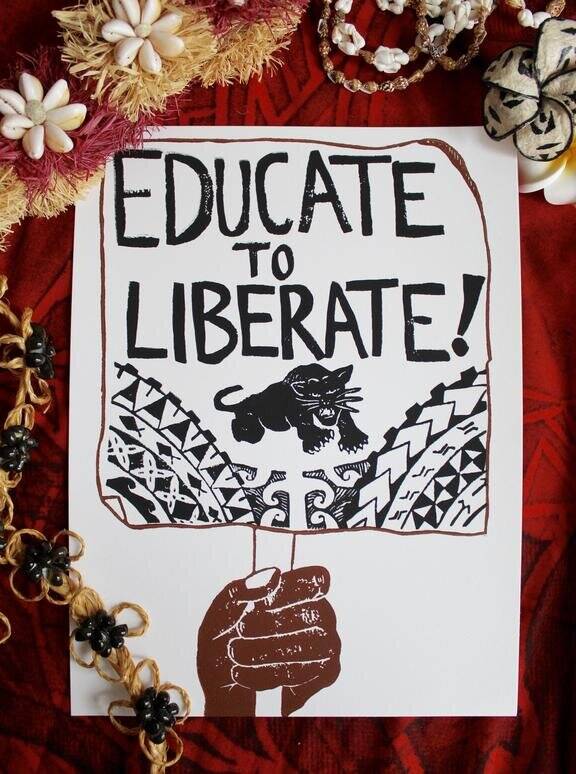 EDUCATE
TO
LIBERATE!